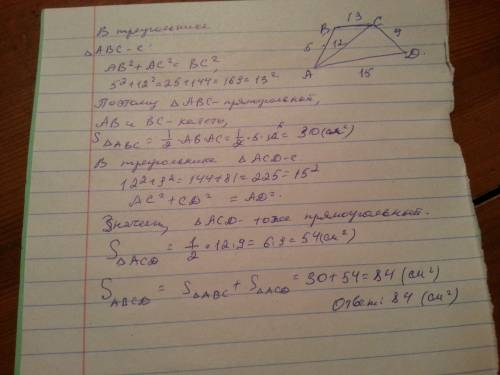 В треугольнике
△ABC-с
AB²+AC²=BC²,
5²+12²=25+144=169=13²
Поэтому △ABC-прямоугольный,
AB и BC-катеты,
S△ABC = 1/2 · AB·AC = 1/2 · 5 · 12 6 = 30(см²)
В треугольнике △ACD-с
12²+9²=144+81=225=15²
AC²+CD² = AD².
Значит, △ACD- тоже прямоугольный.
S△ACD = 1/2 · 12·9 = 6·9 = 54(см²)
S ABCD = S△ABC + S△ACD = 30+54=84 (см²)
Ответ: 84 (см²)
B 13 C
5 12 9
A 15 D